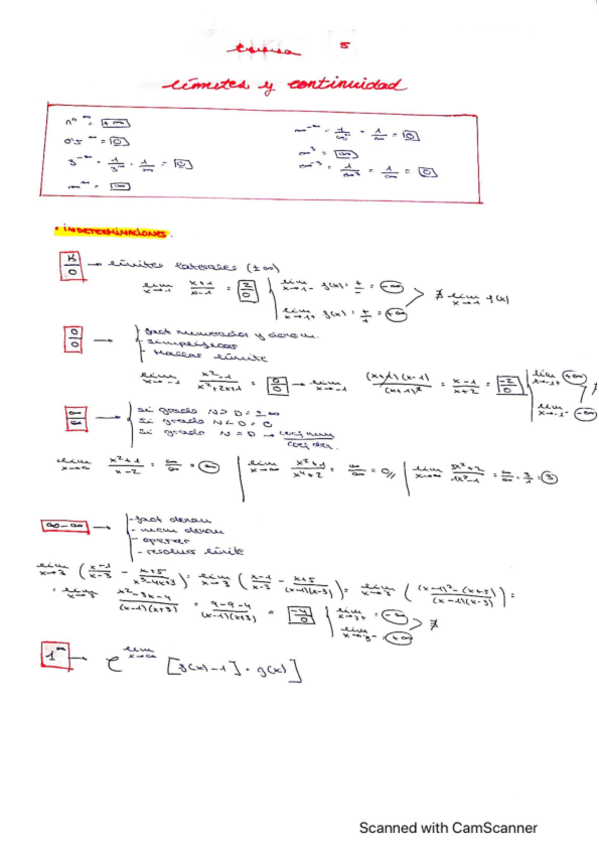 5
Límites y continuidad
n^∞ = +∞
0'5^∞ = 0
3^-∞ = 1/3^∞ = 1/∞ = 0
∞^∞ = ∞
∞^-∞ = 1/∞^∞ = 1/∞ = 0
∞^3 = ∞
∞^-3 = 1/∞^3 = 1/∞ = 0
• INDETERMINACIONES.
K/0 → límites laterales (±∞)
lim x→1 x+1/x-1 = 2/0
lim x→1- f(x) = +/- = -∞
lim x→1+ f(x) = +/+ = +∞
∄ lim x→1 f(x)
0/0 →
- fact numerador y denom.
- simplificar
- Hacer límite
lim x→-1 x²-1/x²+2x+1 = 0/0 → lim x→-1 (x+1)(x-1)/(x+1)² = x-1/x+2 = -2/0
lim x→-1+ +∞
lim x→-1- -∞
∞/∞ →
Si grado N > D = ±∞
Si grado N < D = 0
Si grado N = D → coef num/coef den.
lim x→∞ x²+1/x-2 = ∞/∞ = ∞ | lim x→∞ x²+1/x⁴+2 = ∞/∞ = 0// | lim x→∞ 3x²+2/1x²-1 = ∞/∞ = 3/1 = 3
∞-∞ →
- fact denom
- mcm denom
- operar
- resolver límite
lim x→3 (x-1/x-3 - x+5/x²-4x+3) = lim x→3 (x-1/x-3 - x+5/(x-1)(x-3)) = lim x→3 ((x-1)²-(x+5)/(x-1)(x-3)) =
= lim x→3 x²-3x-4/(x-1)(x+3) = 9-9-4/(x-1)(x-3) = -4/0
lim x→3+ = -∞
lim x→3- = +∞
∄
1^∞ → e^lim x→∞ [f(x)-1]·g(x)]
Scanned with CamScanner